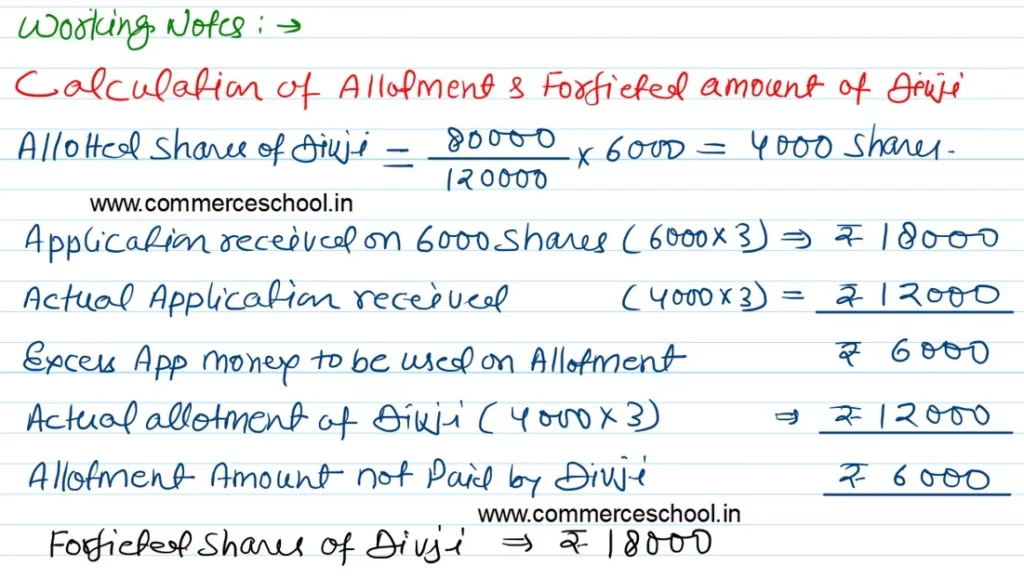 Working Notes : →
Calculation of Allotment & Forficted amount of Divji
Allotted Shares of Divji = 80000/120000 × 6000 = 4000 Shares.
www.commerceschool.in
Application received on 6000 Shares (6000×3) ⇒ ₹ 18000
Actual Application received (4000×3) = ₹ 12000
Excess App money to be used on Allotment ₹ 6000
Actual allotment of Divji (4000×3) ⇒ ₹ 12000
Allotment Amount not Paid by Divji ₹ 6000
www.commerceschool.in
Forficted Shares of Divji ⇒ ₹ 18000